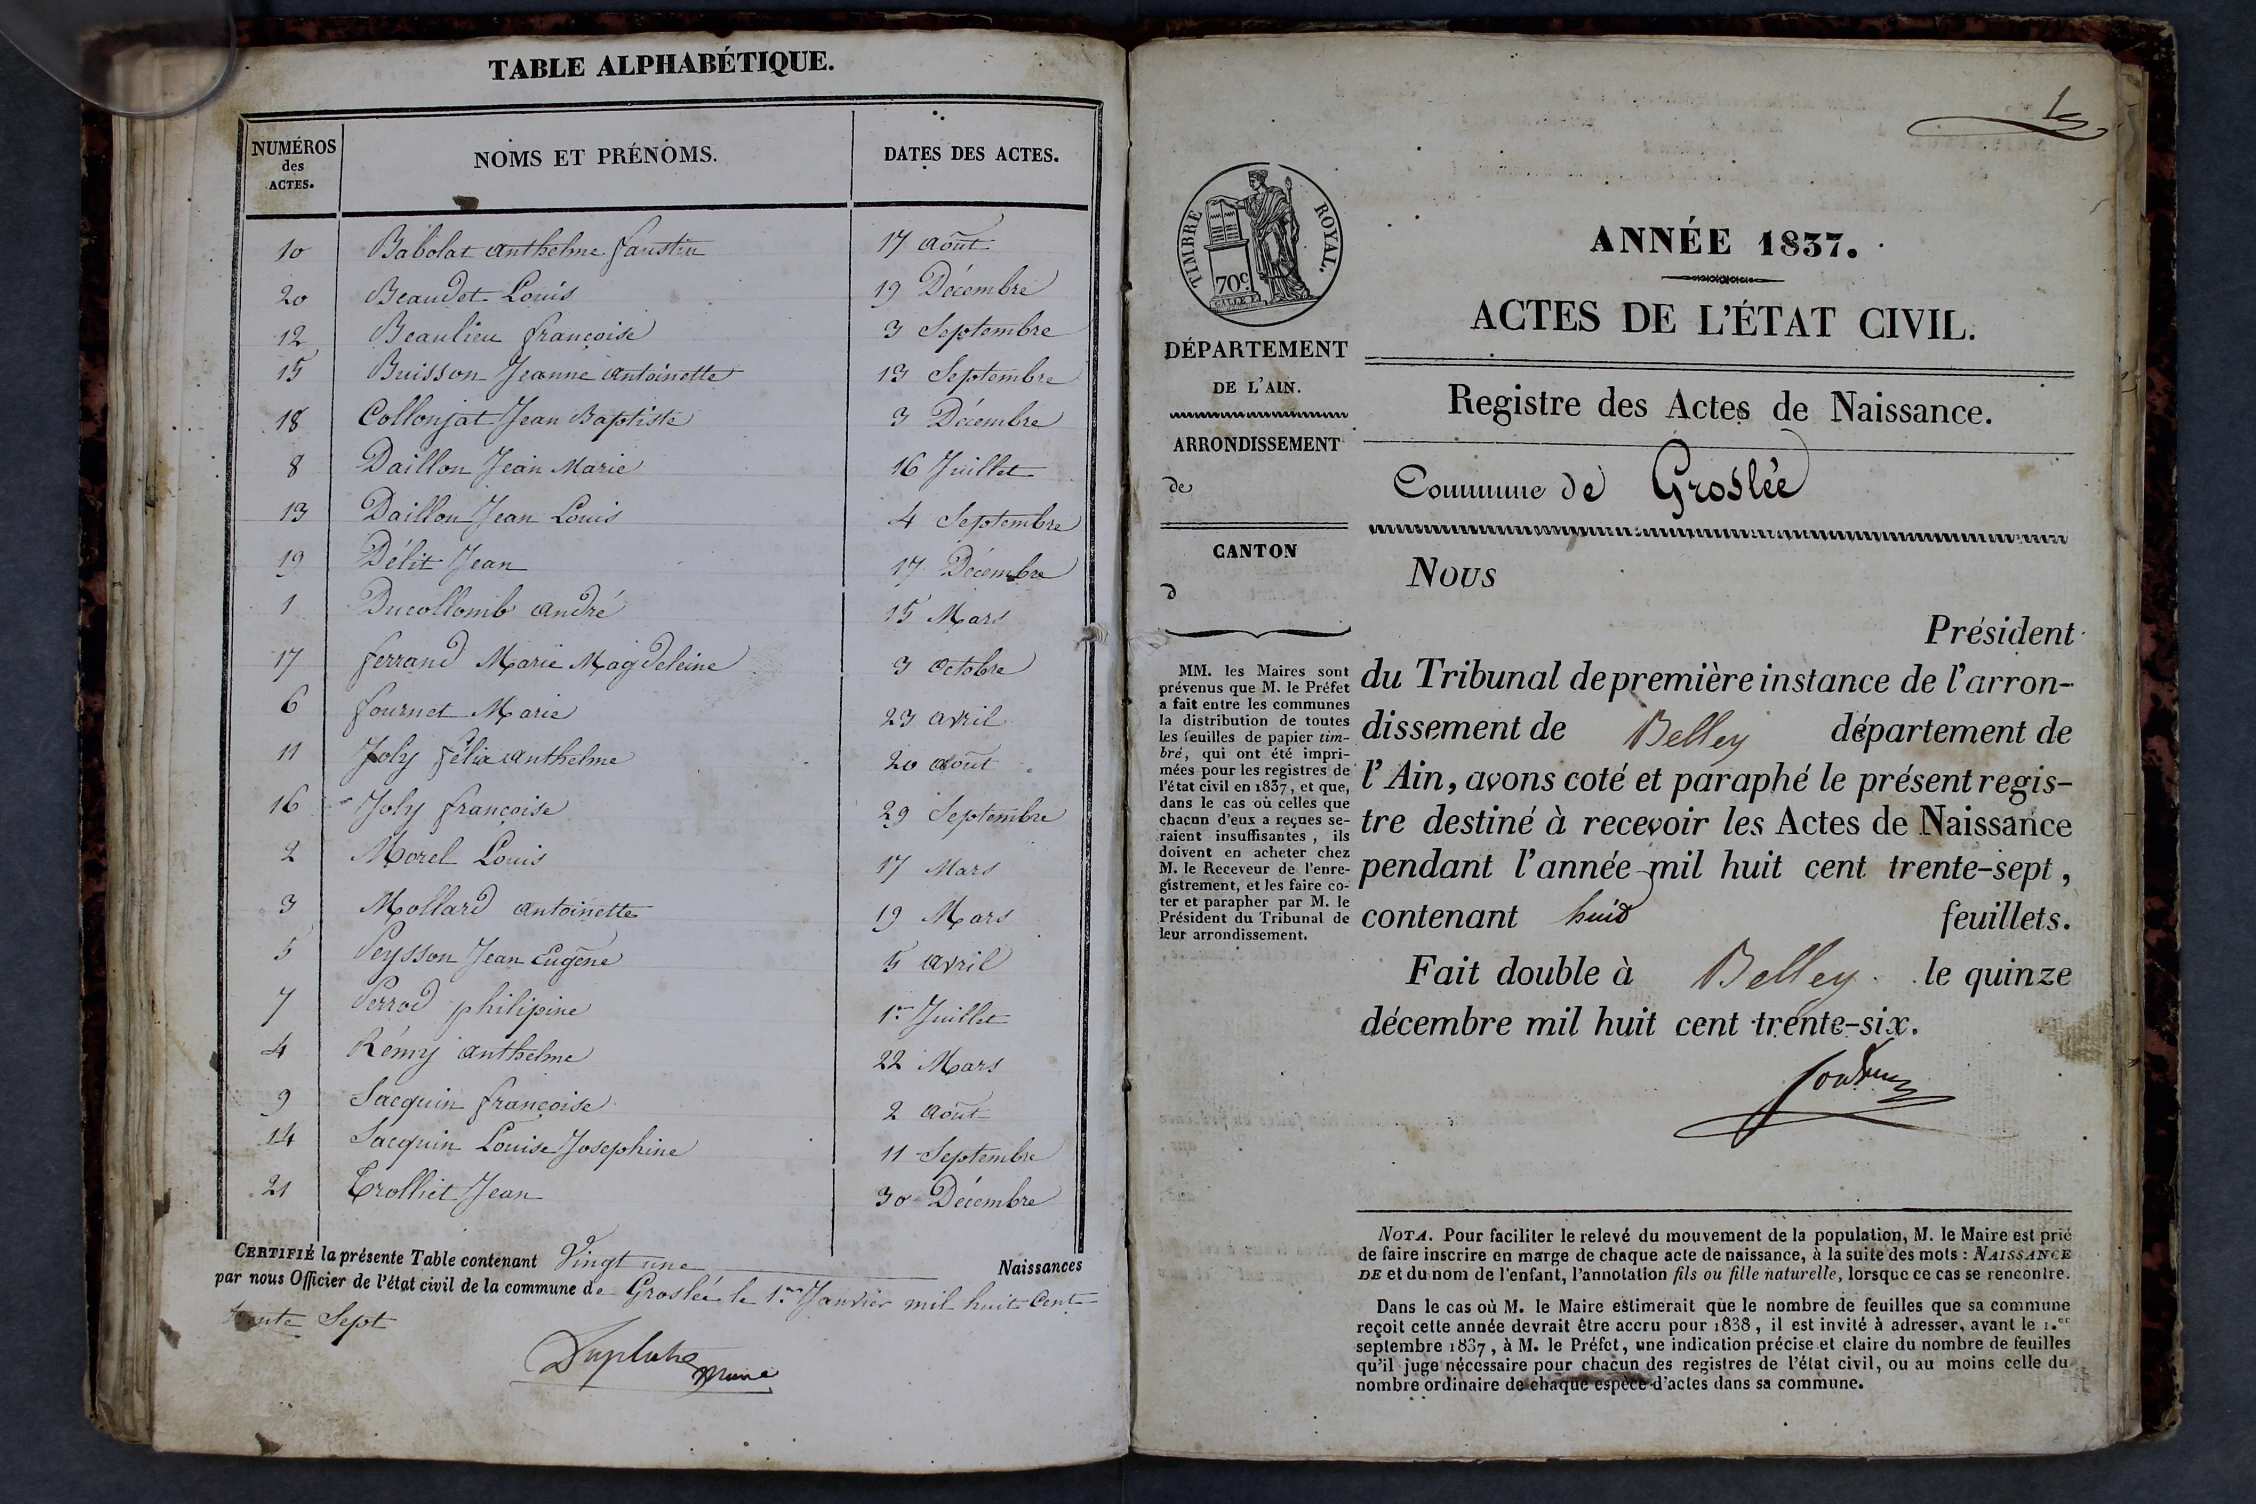 TABLE ALPHABÉTIQUE.
NUMÉROS
des
ACTES.
NOMS ET PRÉNOMS.
DATES DES ACTES.
10 Babolat anthelme faustin 17 août
20 Beaudet Louis 19 Décembre
12 Beaulieu françoise 3 Septembre
15 Buisson Jeanne antoinette 13 Septembre
18 Collonjat Jean Baptiste 3 Décembre
8 Daillon Jean Marie 16 Juillet
13 Daillon Jean Louis 4 Septembre
19 Délit Jean 17 Décembre
1 Ducollomb andré 15 Mars
17 ferrand Marie Magdeleine 3 octobre
6 fournet Marie 23 avril
11 Joly félix anthelme 20 août
16 Joly françoise 29 Septembre
2 Morel Louis 17 Mars
3 Mollard antoinette 19 Mars
5 Peysson Jean Eugène 5 avril
7 Perrod philipine 1er Juillet
4 Rémy anthelme 22 Mars
9 Sacquin françoise 2 août
14 Sacquin Louise Josephine 11 Septembre
21 Trolliet Jean 30 Décembre
CERTIFIÉ la présente Table contenant Vingt une Naissances
par nous Officier de l'état civil de la commune de Groslée le 1er Janvier mil huit Cent
trente Sept
TIMBRE ROYAL.
70c
ANNÉE 1837.
ACTES DE L'ÉTAT CIVIL.
DÉPARTEMENT
DE L'AIN.
ARRONDISSEMENT
de
CANTON
d
MM. les Maires sont
prévenus que M. le Préfet
a fait entre les communes
la distribution de toutes
les feuilles de papier tim-
bré, qui ont été impri-
mées pour les registres de
l'état civil en 1837, et que,
dans le cas où celles que
chacun d'eux a reçues se-
raient insuffisantes, ils
doivent en acheter chez
M. le Receveur de l'enre-
gistrement, et les faire co-
ter et parapher par M. le
Président du Tribunal de
leur arrondissement.
Registre des Actes de Naissance.
Commune de Groslée
NOUS
Président
du Tribunal de première instance de l'arron-
dissement de Belley département de
l'Ain, avons coté et paraphé le présent regis-
tre destiné à recevoir les Actes de Naissance
pendant l'année mil huit cent trente-sept,
contenant huit feuillets.
Fait double à Belley le quinze
décembre mil huit cent trente-six.
NOTA. Pour faciliter le relevé du mouvement de la population, M. le Maire est prié
de faire inscrire en marge de chaque acte de naissance, à la suite des mots : NAISSANCE
DE et du nom de l'enfant, l'annotation fils ou fille naturelle, lorsque ce cas se rencontre.
Dans le cas où M. le Maire estimerait que le nombre de feuilles que sa commune
reçoit cette année devrait être accru pour 1838, il est invité à adresser, avant le 1.er
septembre 1837, à M. le Préfet, une indication précise et claire du nombre de feuilles
qu'il juge nécessaire pour chacun des registres de l'état civil, ou au moins celle du
nombre ordinaire de chaque espèce d'actes dans sa commune.